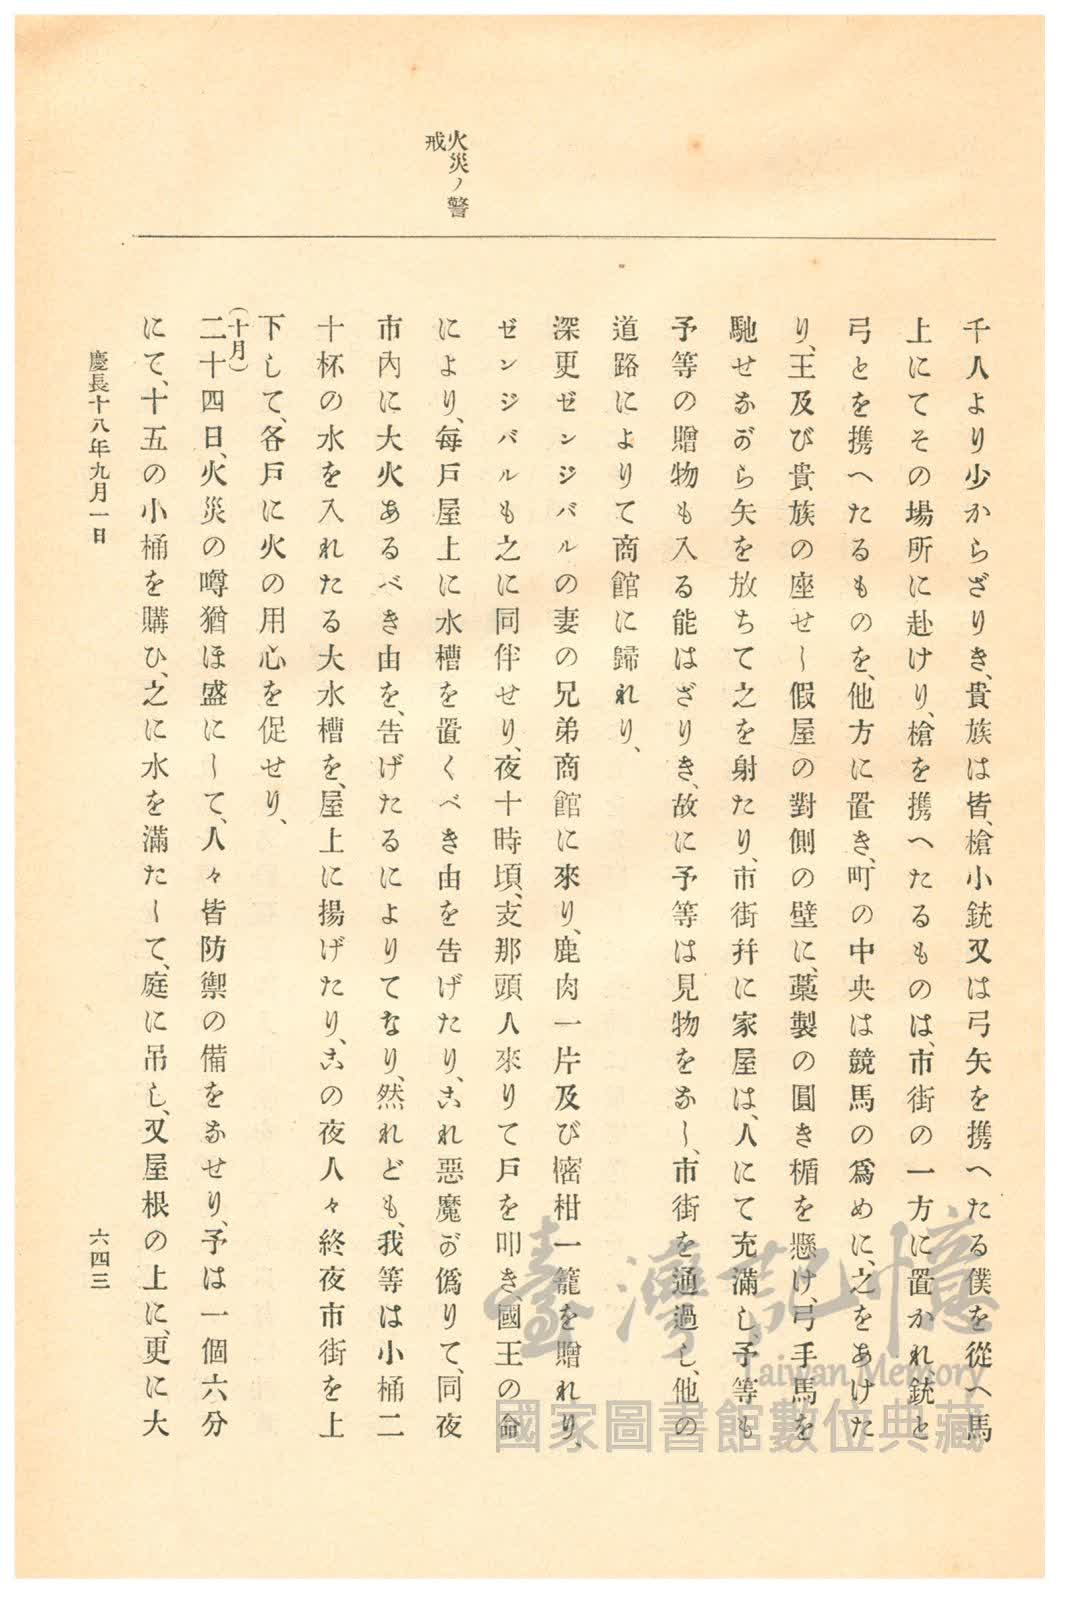 火災ノ警
戒
千人より少からざりき、貴族は皆、槍小銃又は弓矢を携へたる僕を從へ馬
上にてその場所に赴けり、槍を携へたるものは、市街の一方に置かれ銃と
弓とを携へたるものを、他方に置き、町の中央は競馬の爲めに、之をあけた
り、王及び貴族の座せし假屋の對側の壁に、藁製の圓き楯を懸け、弓手馬を
馳せながら矢を放ちて之を射たり、市街幷に家屋は、人にて充滿し予等も
予等の贈物も入る能はざりき、故に予等は見物をなし、市街を通過し、他の
道路によりて商館に歸れり、
深更ゼンジバルの妻の兄弟商館に來り、鹿肉一片及び密柑一籠を贈れり、
ゼンジバルも之に同伴せり、夜十時頃、支那頭人來りて戸を叩き、國王の命
により、每戸屋上に水槽を置くべき由を告げたり、これ惡魔が僞りて、同夜
市內に大火あるべき由を、告げたるによりてなり、然れども、我等は小桶二
十杯の水を入れたる大水槽を、屋上に揚げたり、この夜人々終夜市街を上
下して、各戸に火の用心を促せり、
(十月)
二十四日、火災の噂猶ほ盛にして、人々皆防禦の備をなせり、予は一個六分
にて、十五の小桶を購ひ、之に水を滿たして、庭に吊し、又屋根の上に、更に大
慶長十八年九月一日
六四三
臺灣記憶
Taiwan Memory
國家圖書館數位典藏